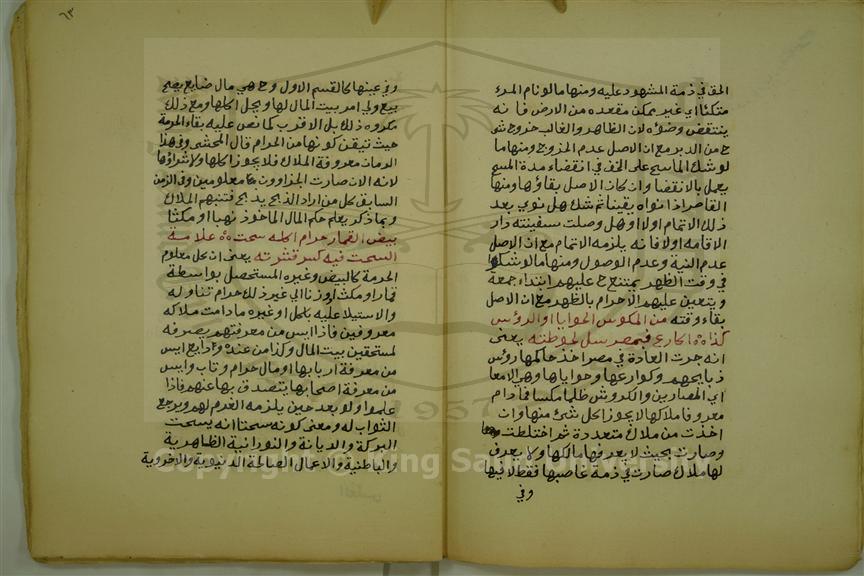 الحق في ذمة المشهود عليه ومنها مالو نام المدء
متكئا اي غير ممكن مقعده من الارض فانه
ينتقض وضوءه لان الظاهر والغالب خروج شي
ح من الدبر مع ان الاصل عدم الخروج ومنها ما
لو شك الماسح على الخف في انقضاء مدة المسح
يعمل بالانقضا وان كان الاصل بقاؤها ومنها
القاصر اذا نواه يقينا ثم شك هل نوي بعد
ذلك الاتمام اولا او هل وصلت سفينته دار
الاقامه اولا فانه يلزمه الاتمام مع ان الاصل
عدم النية وعدم الوصول ومنها مالو شكوا
في وقت الظهر يمتنع ح عليهم ابتداء جمعة
ويتعين عليهم الاحرام بالظهر مع ان الاصل
بقاء وقته من المكوس الحوايا او الرؤس
كذاه اكارع فبمصر سل لحوطته يعنى
انه جرت العادة في مصر اخذ حاكمها رؤس
ذبايحهم وكوارعها وحواياها وهي الامعا
اي المصارين والكروش ظلما مكسا فما دام
معروفا ملاكها لا يجوز اكل شئ منها وان
اخذت من ملاك متعددة ثم اختلطت
وصارت بحيث لا يعرف مالكها ولا يعرف
لها ملاك صارت في ذمة غاصبها فقط لا فيها
وفي
٦٣
وفي عينها كالقسم الاول وح هي مال ضايع يصح
بيع ولي امر بيت المال لها ويحل اكلها ومع ذلك
مكروه ذلك بل الاقرب كما نص عليه بقاء الحرمة
حيث تيقن كونها من الحرام قال المحشى وفي هذا
الزمان معروفة الملاك فلا يجوز اكلها ولا شراؤها
لانه الان صارت الجزاوون معلومين وفي الزمن
السابق كل من اراد الذبح يذبح فتبهم الملاك
وبما ذكر يعلم حكم المال الماخوذ نهبا او مكثا
بيض القمار حرام اكله سحت علامة
السحت فيه كسر قشرته يعنى ان كل معلوم
الحرمة كالبيض وغيره المستحصل بواسطة
قمار او مكث اوزنا الي غير ذلك حرام تناوله
والاستيلا عليه باكل او غيره مادامت ملاكه
معروفين فاذا ايس من معرفتهم يصرفه
لمستحقين بيت المال وكذا من عنده ودايع ايس
من معرفة اربابها او مال حرام وتاب وايس
من معرفة اصحابها يتصدق بها عنهم فاذا
علموا ولو بعد حين يلزمه الغرم لهم ويرجع
الثواب له ومعنى كونه سحتا انه يسحت
البركة والديانة والنورانية الظاهرية
والباطنية والاعمال الصالحة الدنيوية والاخروية
Copyright © King Saud University
1957